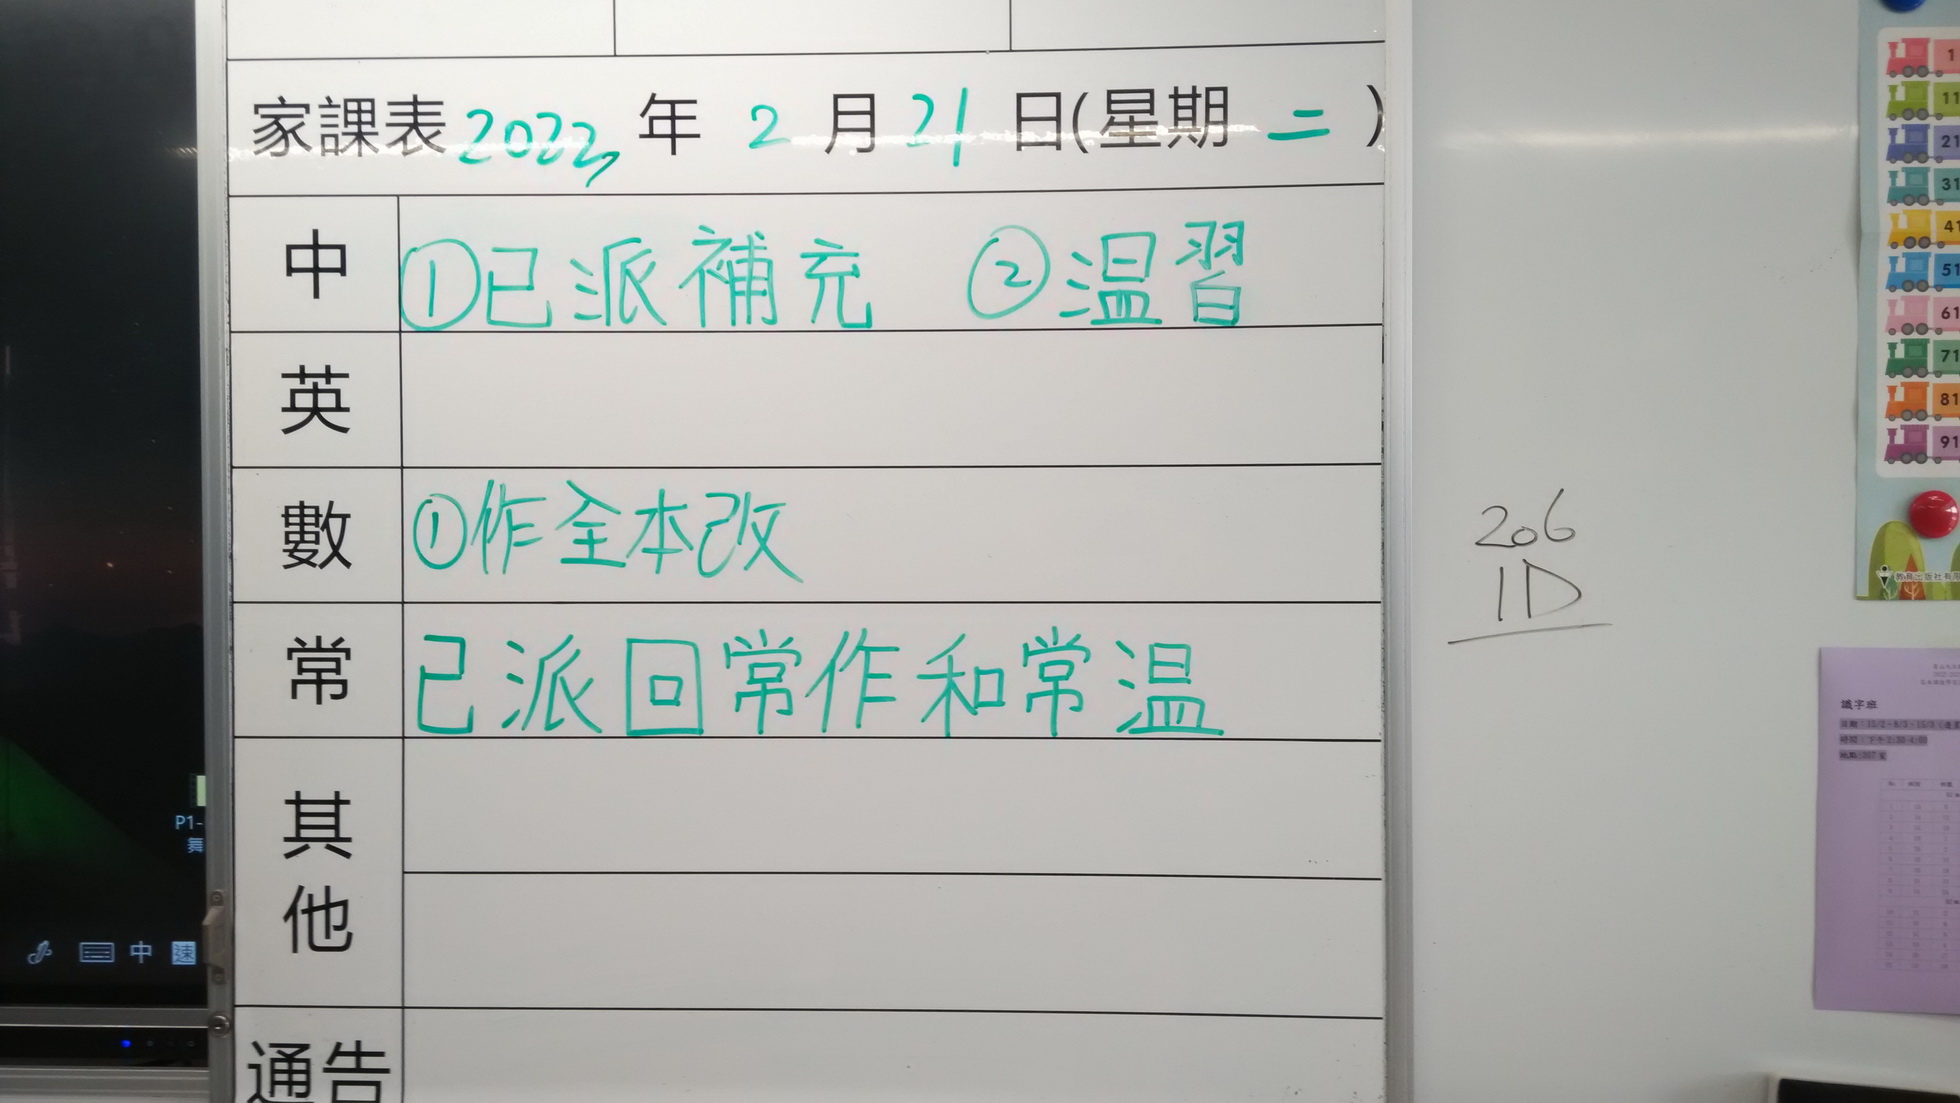 家課表 2023年 2 月 21 日(星期 二 )
中 ①已派補充 ②温習
英
數 ①作全本改
常 已派回常作和常温
其他
通告
206
1D
P1-
舞
中 速
1
11
21
31
41
51
61
71
81
91
識字班